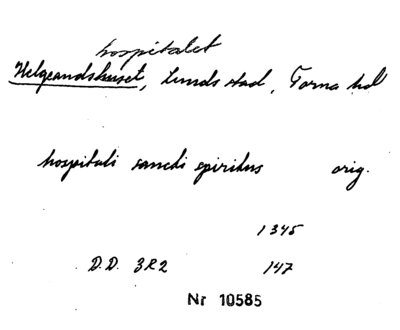 hospitalet
Helgeandshuset, Lunds stad, Torna hd
hospitali sancti spiritus orig.
1345
D.D. 3R2 147
Nr 10585